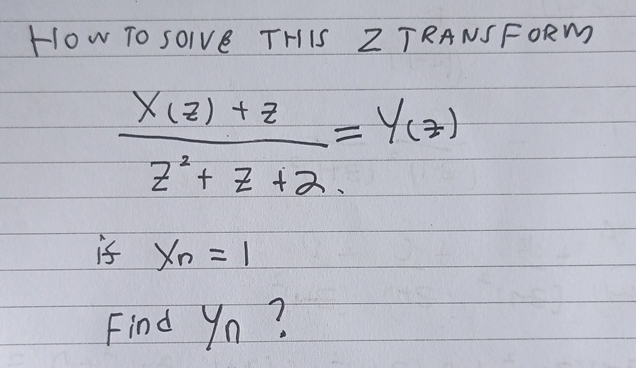 HOW TO SOLVE THIS Z TRANSFORM
X(z) + z
z² + z + 2.
= Y(z)
if Xn = 1
Find Yn ?